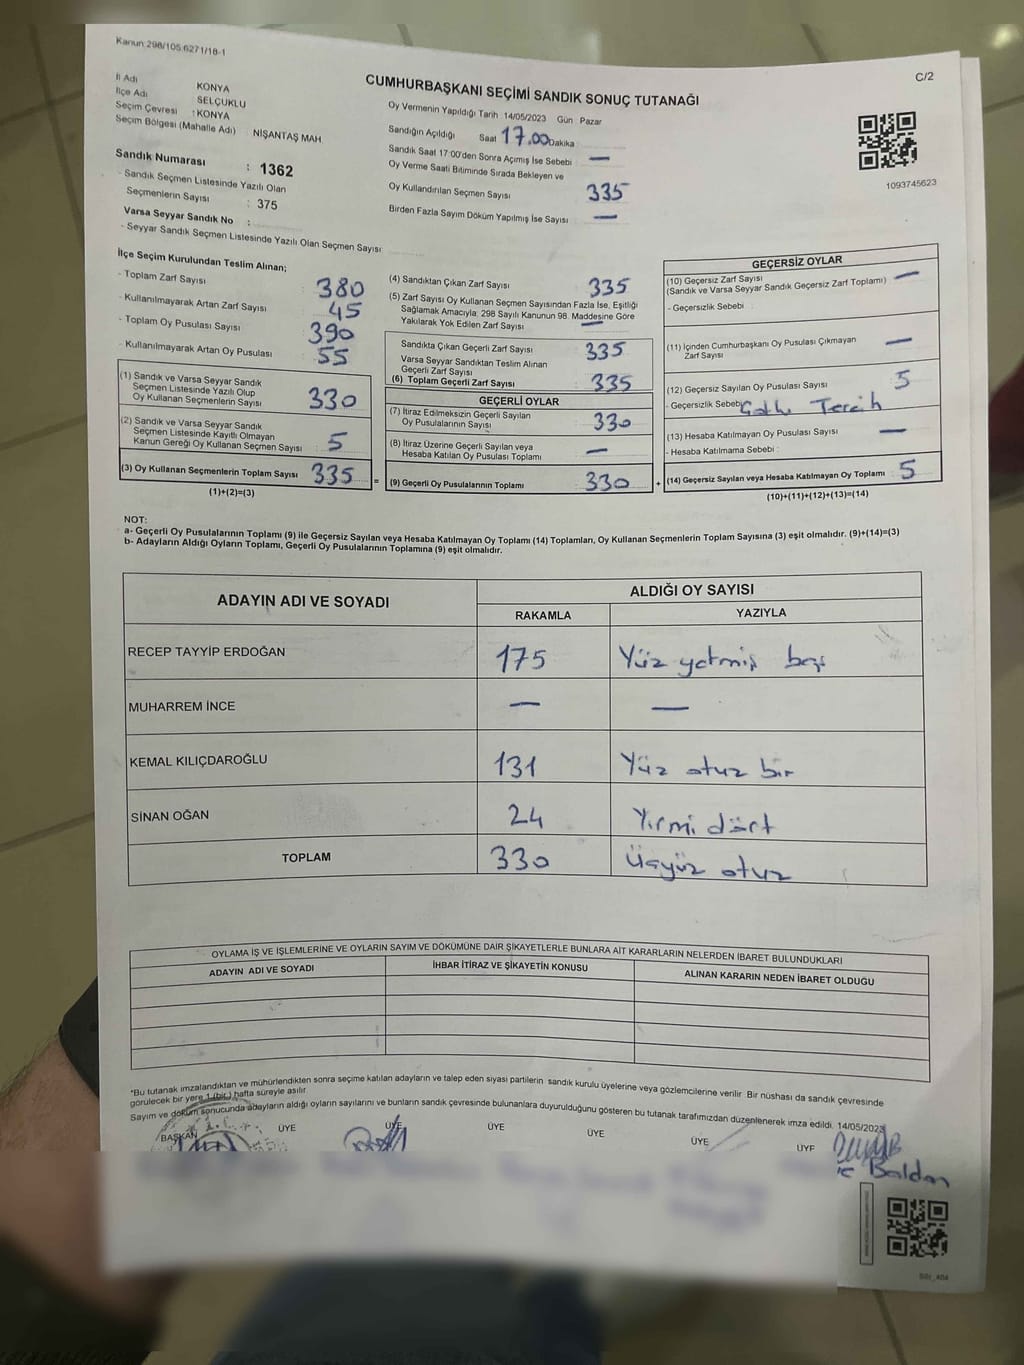 Kanun:298/105,6271/18-1
C/2
CUMHURBAŞKANI SEÇİMİ SANDIK SONUÇ TUTANAĞI
İl Adı KONYA
İlçe Adı SELÇUKLU
Seçim Çevresi : KONYA
Seçim Bölgesi (Mahalle Adı) : NİŞANTAŞ MAH
Sandık Numarası : 1362
- Sandık Seçmen Listesinde Yazılı Olan
Seçmenlerin Sayısı : 375
Varsa Seyyar Sandık No :
- Seyyar Sandık Seçmen Listesinde Yazılı Olan Seçmen Sayısı:
Oy Vermenin Yapıldığı Tarih 14/05/2023 Gün : Pazar
Sandığın Açıldığı Saat 17.00 Dakika
Sandık Saat 17:00'den Sonra Açımış İse Sebebi : —
Oy Verme Saati Bitiminde Sırada Bekleyen ve
Oy Kullandırılan Seçmen Sayısı 335
Birden Fazla Sayım Döküm Yapılmış İse Sayısı : —
1093745623
İlçe Seçim Kurulundan Teslim Alınan;
- Toplam Zarf Sayısı : 380
- Kullanılmayarak Artan Zarf Sayısı : 45
- Toplam Oy Pusulası Sayısı : 390
- Kullanılmayarak Artan Oy Pusulası : 55
(1) Sandık ve Varsa Seyyar Sandık
Seçmen Listesinde Yazılı Olup
Oy Kullanan Seçmenlerin Sayısı : 330
(2) Sandık ve Varsa Seyyar Sandık
Seçmen Listesinde Kayıtlı Olmayan
Kanun Gereği Oy Kullanan Seçmen Sayısı : 5
(3) Oy Kullanan Seçmenlerin Toplam Sayısı : 335 =
(1)+(2)=(3)
(4) Sandıktan Çıkan Zarf Sayısı : 335
(5) Zarf Sayısı Oy Kullanan Seçmen Sayısından Fazla İse, Eşitliği
Sağlamak Amacıyla; 298 Sayılı Kanunun 98. Maddesine Göre
Yakılarak Yok Edilen Zarf Sayısı : —
Sandıkta Çıkan Geçerli Zarf Sayısı : 335
Varsa Seyyar Sandıktan Teslim Alınan
Geçerli Zarf Sayısı :
(6) Toplam Geçerli Zarf Sayısı : 335
GEÇERLİ OYLAR
(7) İtiraz Edilmeksizin Geçerli Sayılan
Oy Pusulalarının Sayısı : 330
(8) İtiraz Üzerine Geçerli Sayılan veya
Hesaba Katılan Oy Pusulası Toplamı : —
(9) Geçerli Oy Pusulalarının Toplamı : 330 +
GEÇERSİZ OYLAR
(10) Geçersiz Zarf Sayısı : —
(Sandık ve Varsa Seyyar Sandık Geçersiz Zarf Toplamı)
- Geçersizlik Sebebi :
(11) İçinden Cumhurbaşkanı Oy Pusulası Çıkmayan
Zarf Sayısı : —
(12) Geçersiz Sayılan Oy Pusulası Sayısı : 5
- Geçersizlik Sebebi Çoklu Tercih
(13) Hesaba Katılmayan Oy Pusulası Sayısı : —
- Hesaba Katılmama Sebebi :
(14) Geçersiz Sayılan veya Hesaba Katılmayan Oy Toplamı : 5
(10)+(11)+(12)+(13)=(14)
NOT:
a- Geçerli Oy Pusulalarının Toplamı (9) ile Geçersiz Sayılan veya Hesaba Katılmayan Oy Toplamı (14) Toplamları, Oy Kullanan Seçmenlerin Toplam Sayısına (3) eşit olmalıdır. (9)+(14)=(3)
b- Adayların Aldığı Oyların Toplamı, Geçerli Oy Pusulalarının Toplamına (9) eşit olmalıdır.
ADAYIN ADI VE SOYADI ALDIĞI OY SAYISI
RAKAMLA YAZIYLA
RECEP TAYYİP ERDOĞAN 175 Yüz yetmiş beş
MUHARREM İNCE — —
KEMAL KILIÇDAROĞLU 131 Yüz otuz bir
SİNAN OĞAN 24 Yirmi dört
TOPLAM 330 Üçyüz otuz
OYLAMA İŞ VE İŞLEMLERİNE VE OYLARIN SAYIM VE DÖKÜMÜNE DAİR ŞİKAYETLERLE BUNLARA AİT KARARLARIN NELERDEN İBARET BULUNDUKLARI
ADAYIN ADI VE SOYADI İHBAR İTİRAZ VE ŞİKAYETİN KONUSU ALINAN KARARIN NEDEN İBARET OLDUĞU
*Bu tutanak imzalandıktan ve mühürlendikten sonra seçime katılan adayların ve talep eden siyasi partilerin sandık kurulu üyelerine veya gözlemcilerine verilir. Bir nüshası da sandık çevresinde
görülecek bir yere 1 (bir) hafta süreyle asılır
Sayım ve döküm sonucunda adayların aldığı oyların sayılarını ve bunların sandık çevresinde bulunanlara duyurulduğunu gösteren bu tutanak tarafımızdan düzenlenerek imza edildi. 14/05/2023
BAŞKAN ÜYE ÜYE ÜYE ÜYE ÜYE ÜYE
Baldan